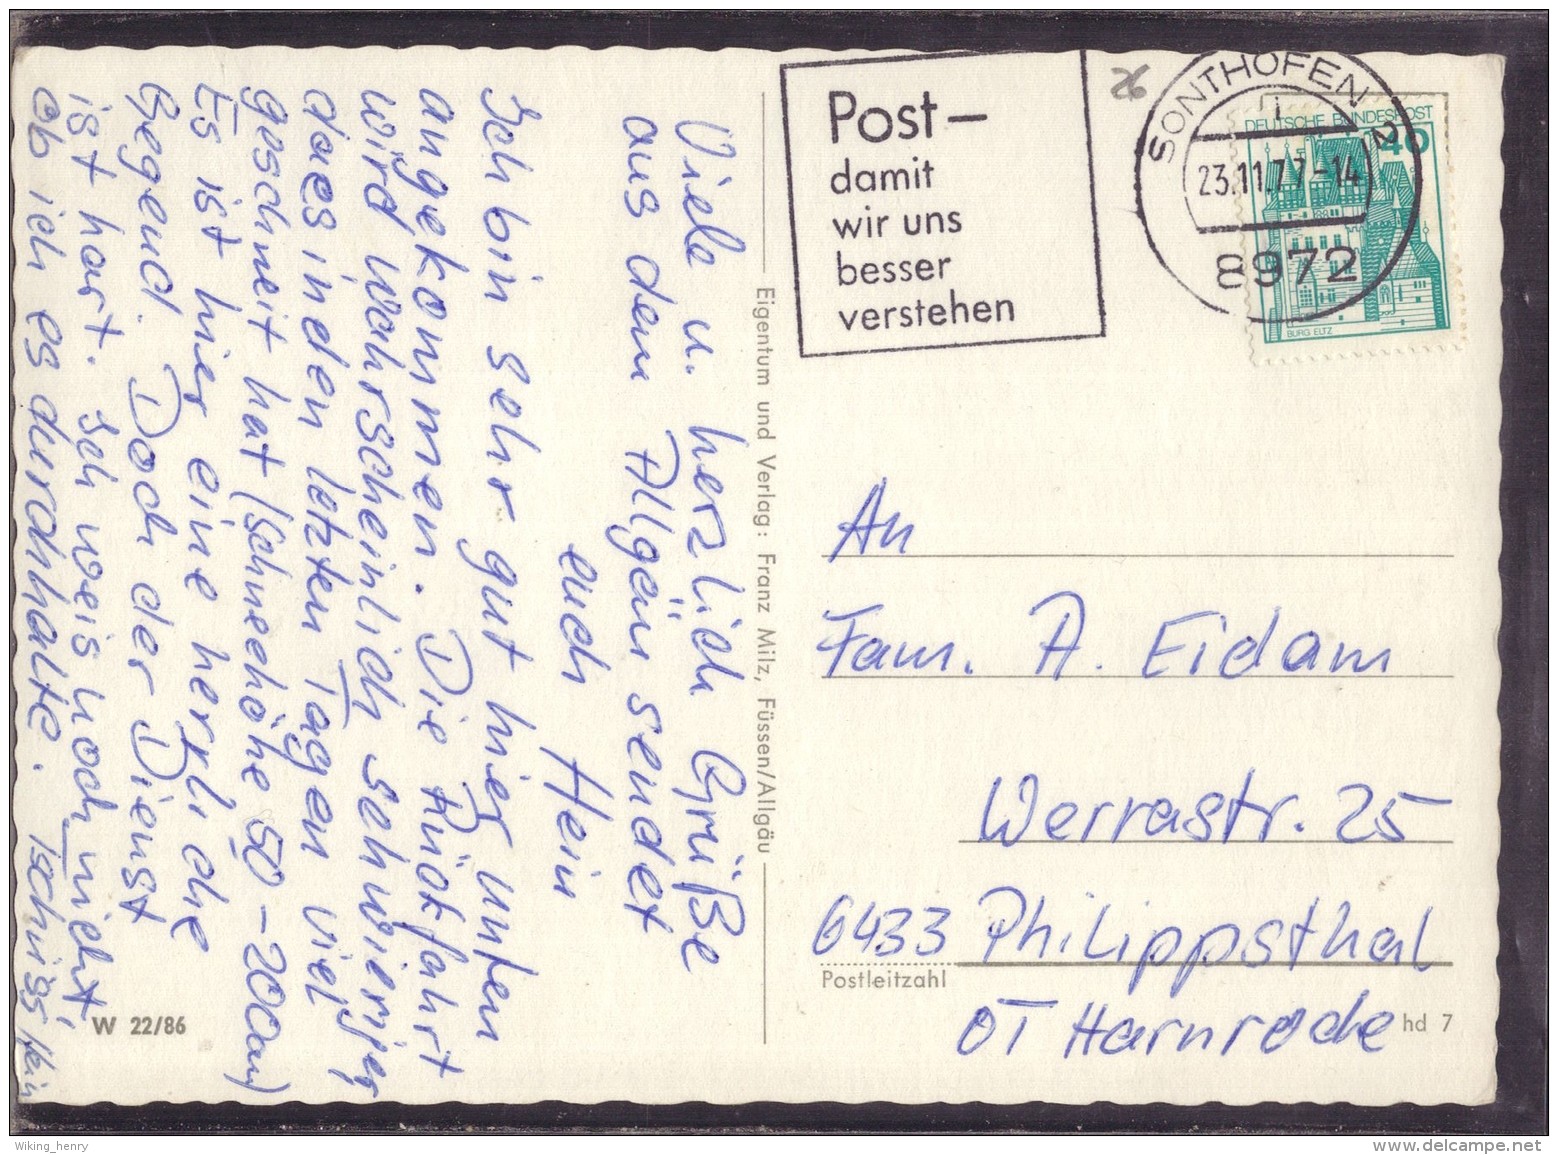 Viele u. herzlich Grüße
aus dem Allgäu sendet
euch Hein
Ich bin sehr gut hier unten
angekommen. Die Rückfahrt
wird wahrscheinlich schwieriger
da es in den letzten Tagen viel
geschneit hat (Schneehöhe 50-200cm)
Es ist hier eine herrliche
Gegend. Doch der Dienst
ist hart. Ich weis noch nicht,
ob ich es durchhalte. Tschüss Hein
W 22/86
Eigentum und Verlag: Franz Milz, Füssen/Allgäu
Post-
damit
wir uns
besser
verstehen
SONTHOFEN 2
i
23.11.77-14
8972
DEUTSCHE BUNDESPOST
40
BURG ELTZ
An
Fam. A. Eidam
Werrastr. 25
6433 Philippsthal
Postleitzahl
OT Harnrode
hd 7
Wiking_henry
delcampe.net